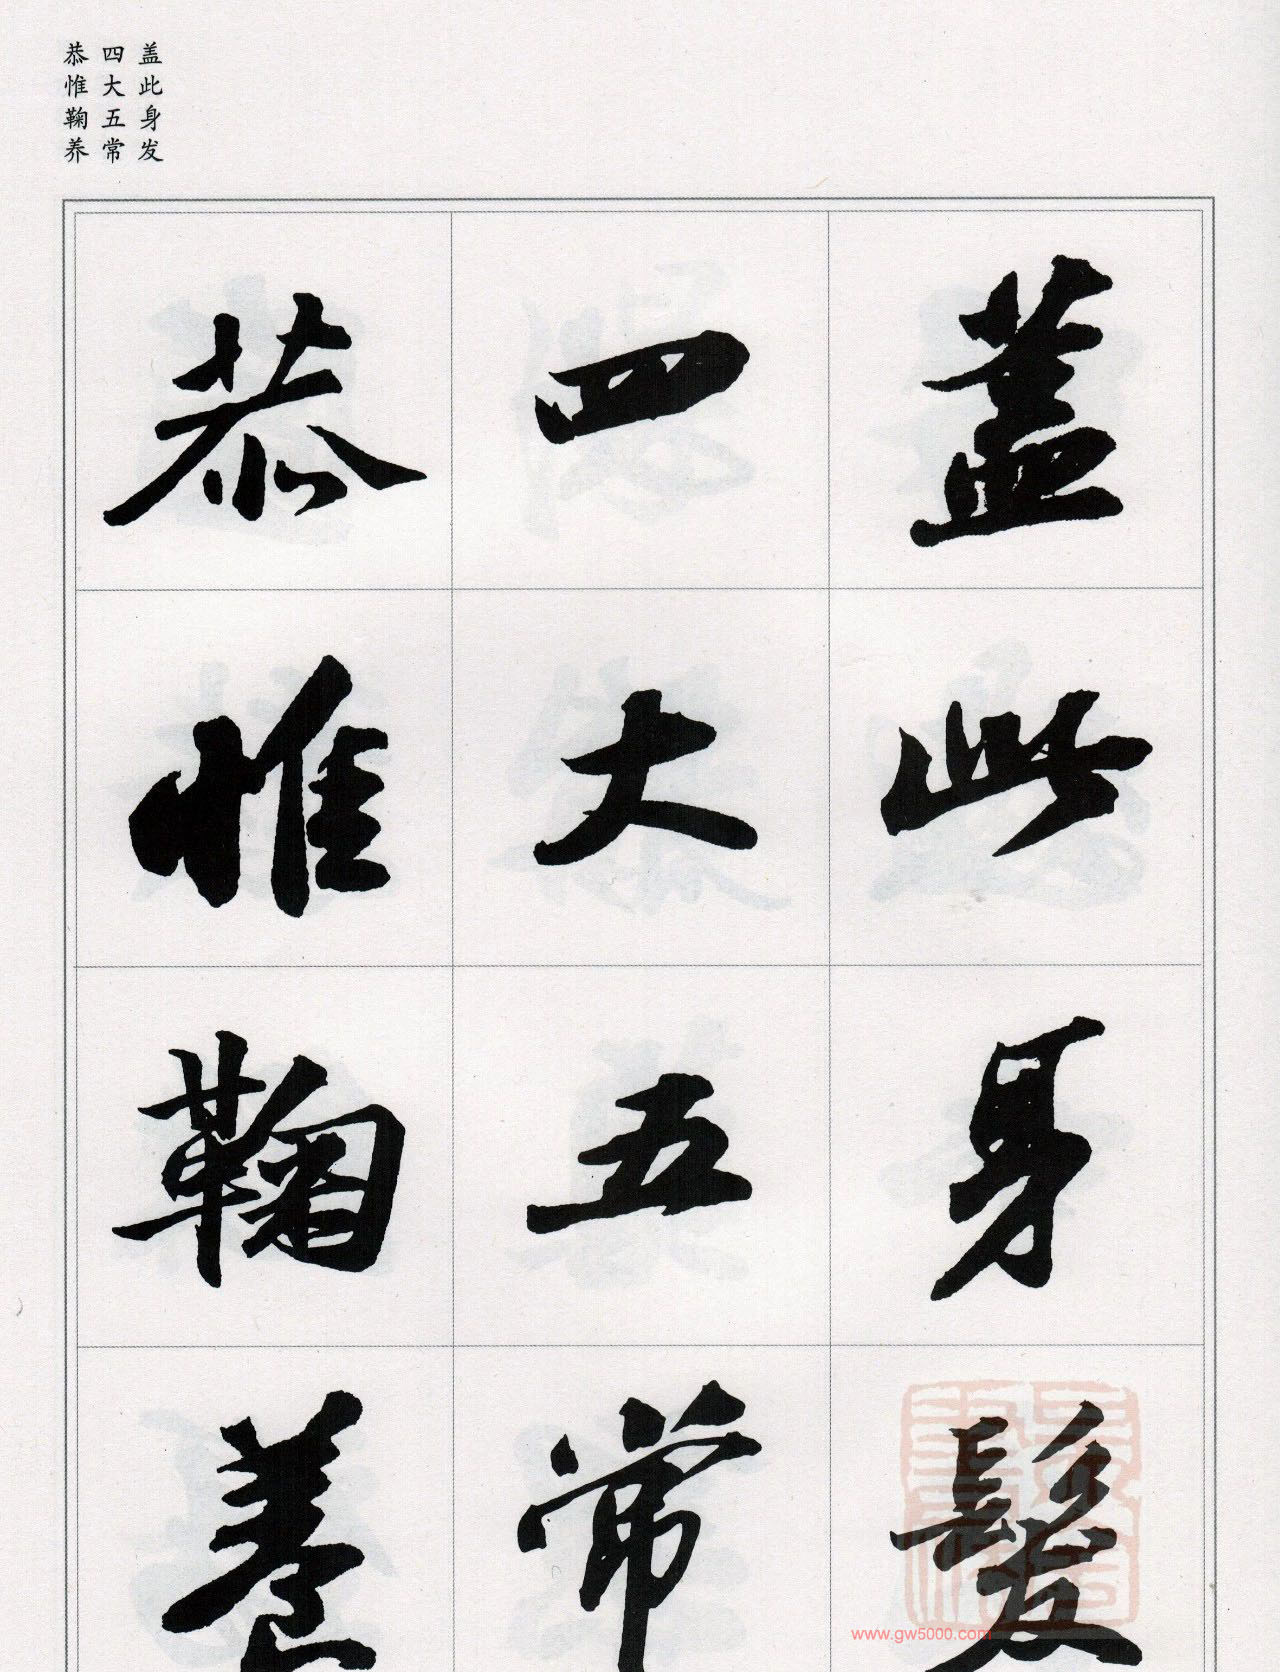 盖此身发
四大五常
恭惟鞠养
蓋此身髮
四大五常
恭惟鞠養
www.gw5000.com